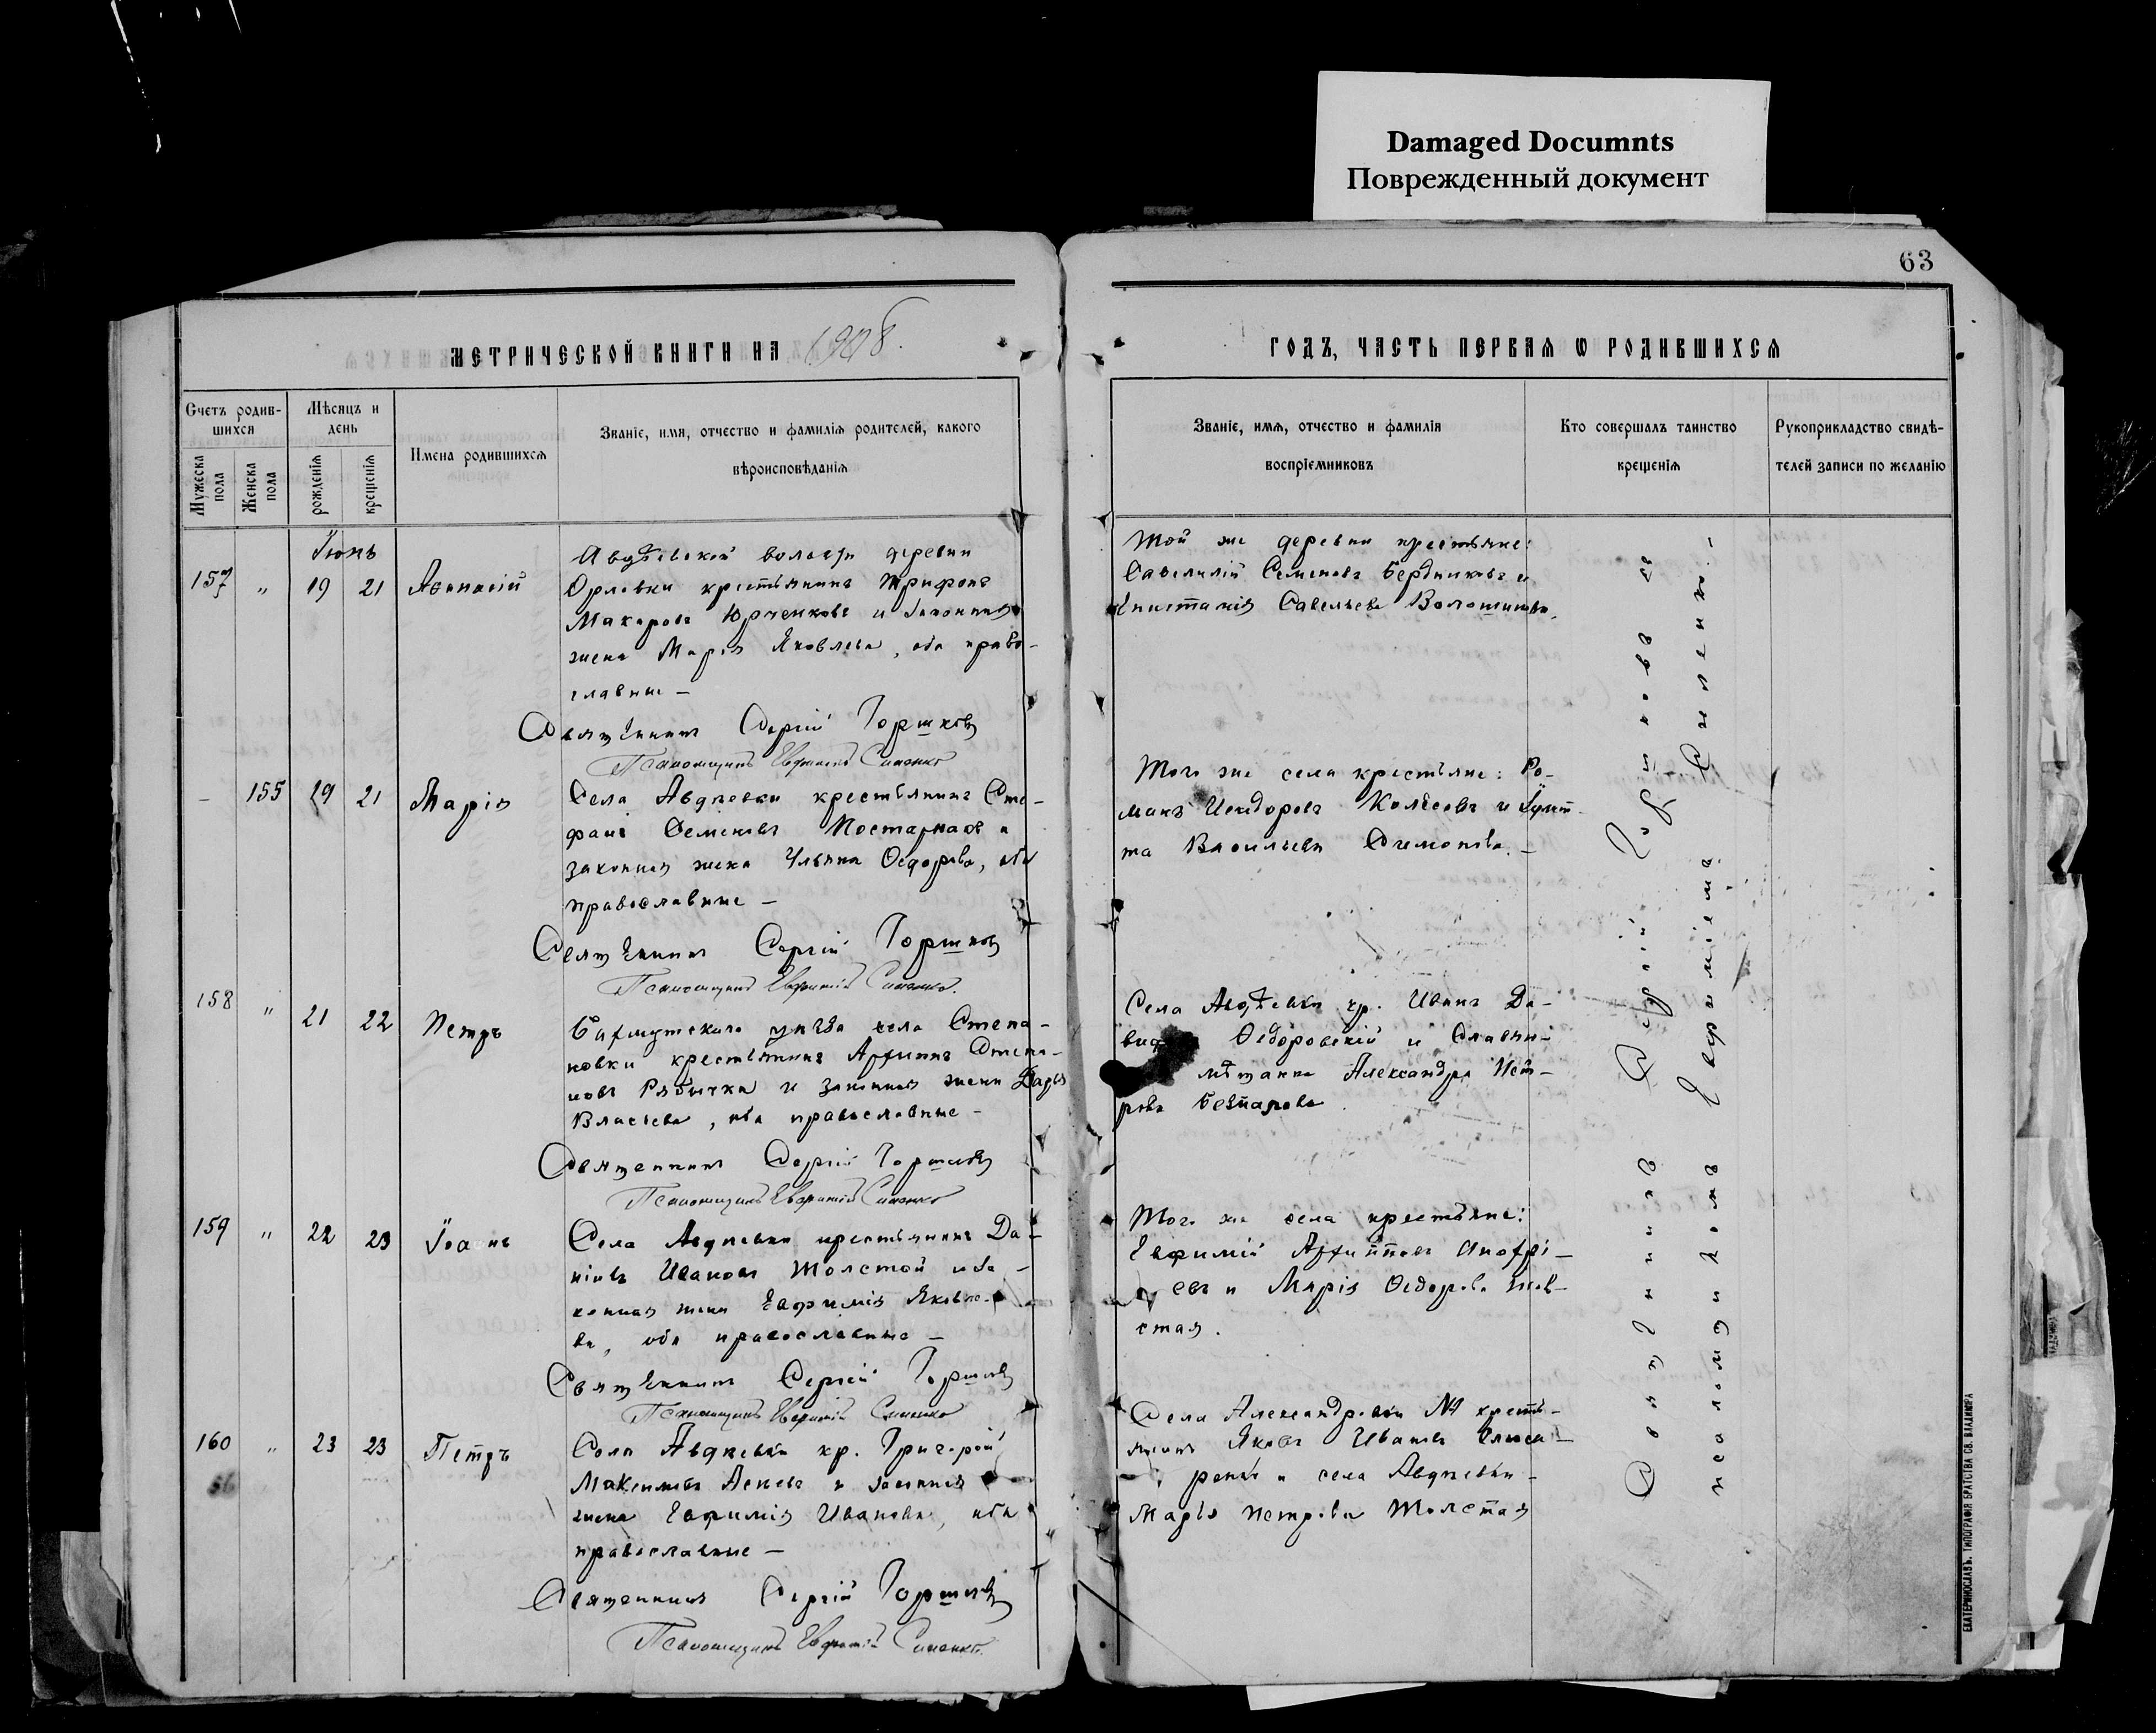 Damaged Documnts
Поврежденный документ
63
МЕТРИЧЕСКОЙ КНИГИ НА 1908
ГОДЪ, ЧАСТЬ ПЕРВАЯ Ѡ РОДИВШИХСЯ
Счетъ родив-
шихся
Мужеска пола
Женска пола
Мѣсяцъ и
день
рожденія
крещенія
Имена родившихся
Званіе, имя, отчество и фамилія родителей, какого
вѣроисповѣданія
Званіе, имя, отчество и фамилія
воспріемниковъ
Кто совершалъ таинство
крещенія
Рукоприкладство свидѣ-
телей записи по желанію
Іюнь
157 " 19 21 Аѳанасій
волости деревни
Орловки крестьянинъ Трифонъ
Макаровъ Юрченковъ и законная
жена Марія Яковлева, оба право-
славные —
Священникъ Сергій Горшковъ
Псаломщикъ Евфимій Симонко
Той же деревни крестьяне:
Савелій Семеновъ Бердниковъ и
Савельева Волошинова.
— 155 19 21 Марія
Села Авдѣевки крестьянинъ Сте-
фанъ Семеновъ и
законная жена Ульяна Ѳедорова, оба
православные —
Священникъ Сергій Горшковъ
Псаломщикъ Евфимій Симонко.
Того же села крестьяне: Ро-
манъ Исидоровъ Колѣсовъ и
та Васильева —
158 " 21 22 Петръ
Бахмутскаго уѣзда села Степа-
новки крестьянинъ Архипъ Степа-
новъ Рябычка и законная жена Дарья
Власьева, оба православные —
Священникъ Сергій Горшковъ
Псаломщикъ Евфимій Симонко
Села Авдѣевки кр. Иванъ Да-
Ѳедоровскій и Славян-
мѣщанка Александра Пет-
рова
159 " 22 23 Іоаннъ
Села Авдѣевки крестьянинъ Да-
Ивановъ Толстой и за-
конная жена Евфимія Яковле-
ва, оба православные —
Священникъ Сергій Горшковъ
Псаломщикъ Евфимій Симонко
Того же села крестьяне:
Евфимій Архиповъ
евъ и Марія Ѳедорова Тол-
стая.
160 " 23 23 Петръ
Села Авдѣевки кр. Григорій
Максимовъ и законная
жена Евфимія Иванова, оба
православные —
Священникъ Сергій Горшковъ
Псаломщикъ Евфимій Симонко.
Села Александровки №1 кресть-
янинъ Яковъ Ивановъ Елиса-
и села Авдѣевки
Марья Петрова Толстая
Священникъ Сергій Горшковъ съ
псаломщикомъ Евфиміемъ Симонко. —
ЕКАТЕРИНОСЛАВЪ. ТИПОГРАФІЯ БРАТСТВА СВ. ВЛАДИМІРА